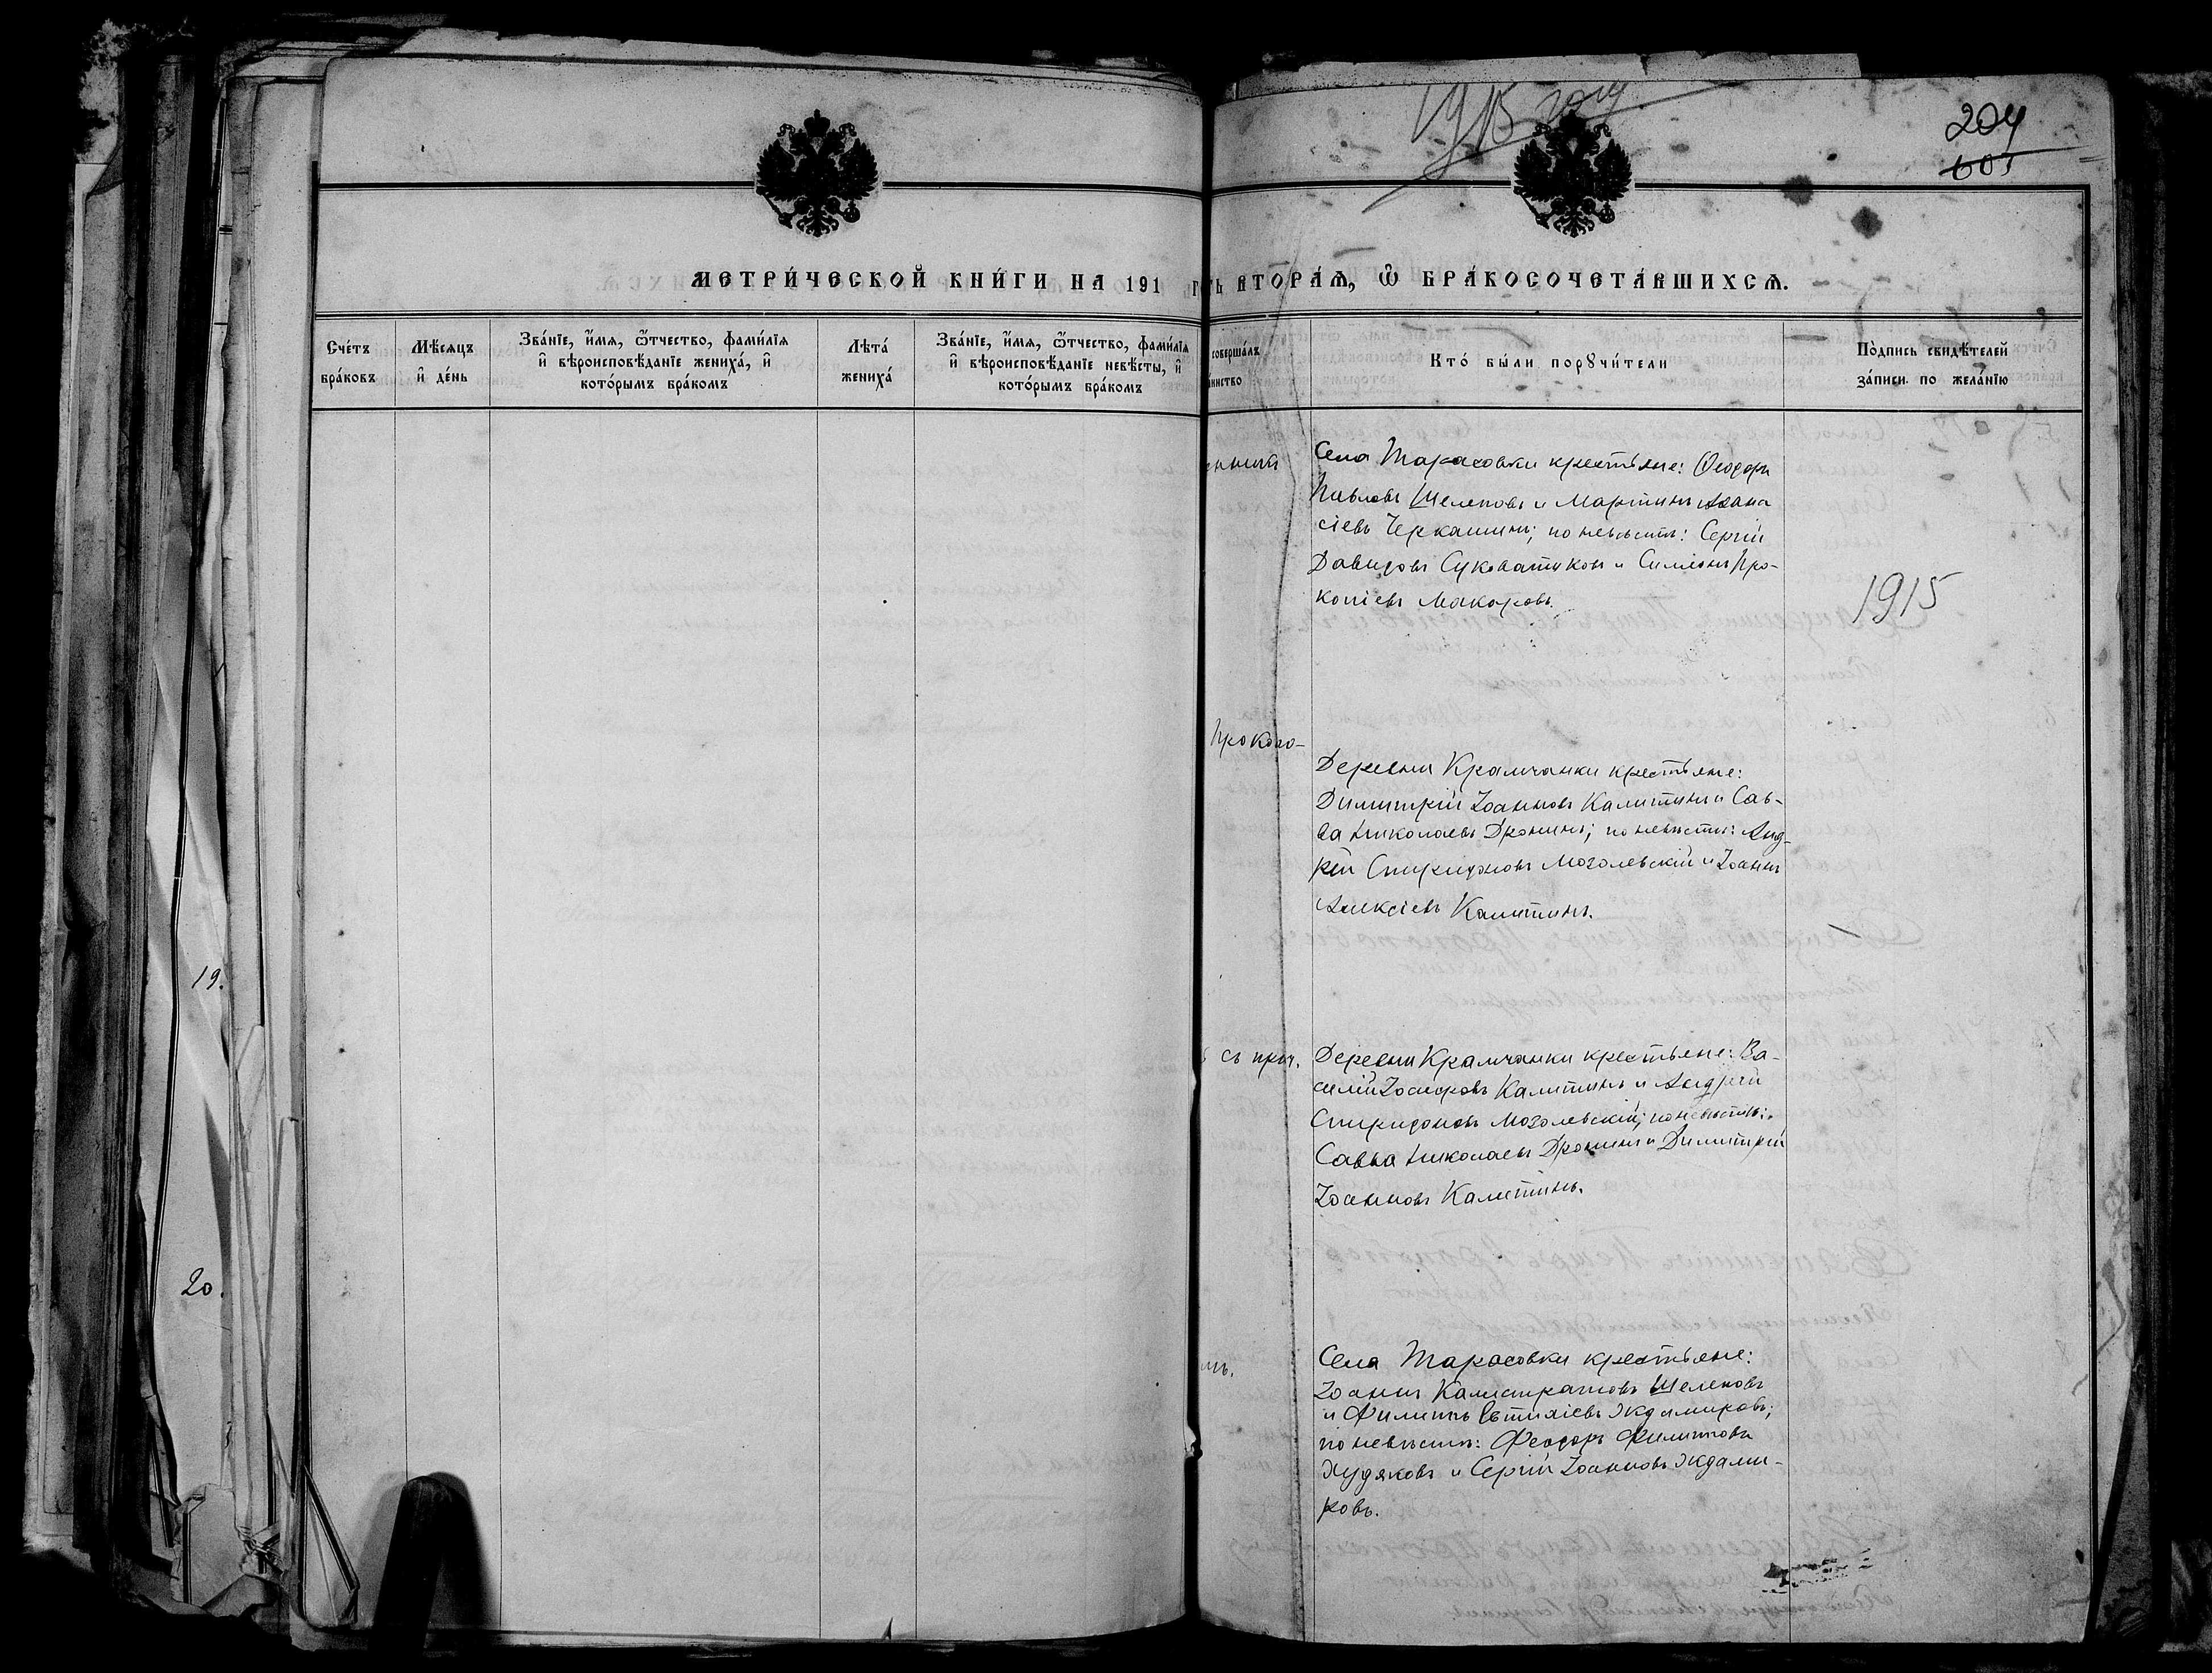 МЕТРИ́ЧЕСКОЙ КНИ́ГИ НА 191
Сче́тъ бра́ковъ
Мѣ́сяцъ и҆ де́нь
Зва́нїе, и҆́мѧ, ѻ҆́тчество, фами́лїѧ и҆ вѣроисповѣ́данїе жениха́, и҆ кото́рымъ бра́комъ
Лѣта́ жениха́
Зва́нїе, и҆́мѧ, ѻ҆́тчество, фами́лїѧ и҆ вѣроисповѣ́данїе невѣ́сты, и҆ кото́рымъ бра́комъ
19.
20.
1915 году
204
603
ть ВТОРА́Ѧ, Ѽ БРАКОСОЧЕТА́ВШИХСѦ.
соверша́лъ
инство
Кто́ бы́ли порꙋчи́тели
По́дпись свидѣ́телей за́писи по жела́нїю
енный
Села Тарасовки крестьяне: Ѳеодоръ
Павловъ Шелеповъ и Мартинъ Аѳана
сіевъ Черкашинъ; по невѣстѣ: Сергій
Давидовъ Суковатиковъ и Симеонъ Про-
копіевъ Макаровъ.
1915
Проково-
Деревни Крамчанки крестьяне:
Димитрій Іоанновъ Калитинъ и Сав-
ва Николаевъ Дронинъ; по невѣстѣ: Анд-
рей Спиридоновъ Моголевскій и Іоаннъ
Алексіевъ Калитинъ.
съ прич.
Деревни Крамчанки крестьяне: Ва-
силій Іосифовъ Калитинъ и Андрей
Спиридоновъ Моголевскій; по невѣстѣ:
Савва Николаевъ Дронинъ и Димитрій
Іоанновъ Калитинъ.
мъ.
Села Тарасовки крестьяне:
Іоаннъ Калистратовъ Шелеповъ
и Филиппъ Евтихіевъ Ждамировъ;
по невѣстѣ: Феодоръ Филипповъ
Худяковъ и Сергій Іоанновъ Ждами-
ровъ.